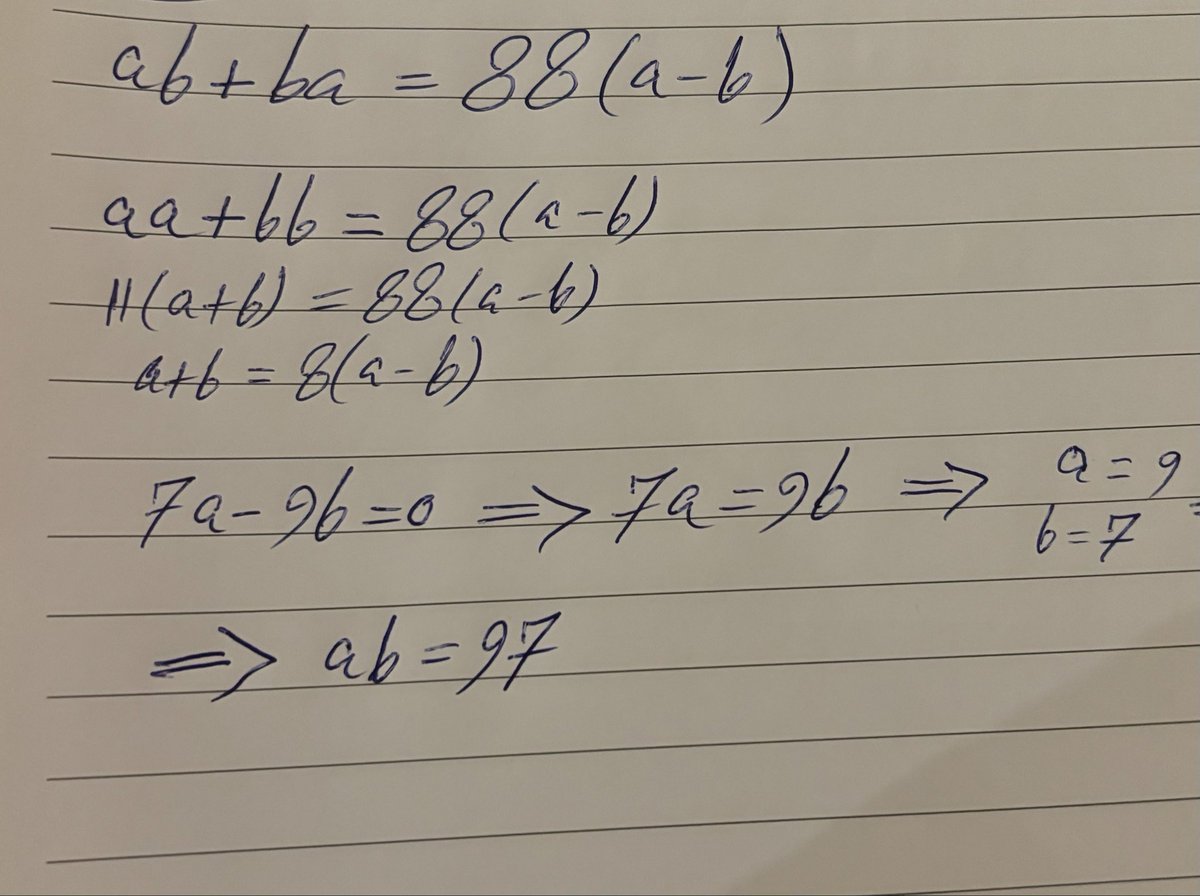 ab+ba = 88(a-b)
aa+bb = 88(a-b)
11(a+b) = 88(a-b)
a+b = 8(a-b)
7a-9b=0 ⟹ 7a=9b ⟹ a=9
b=7 =
⟹ ab=97